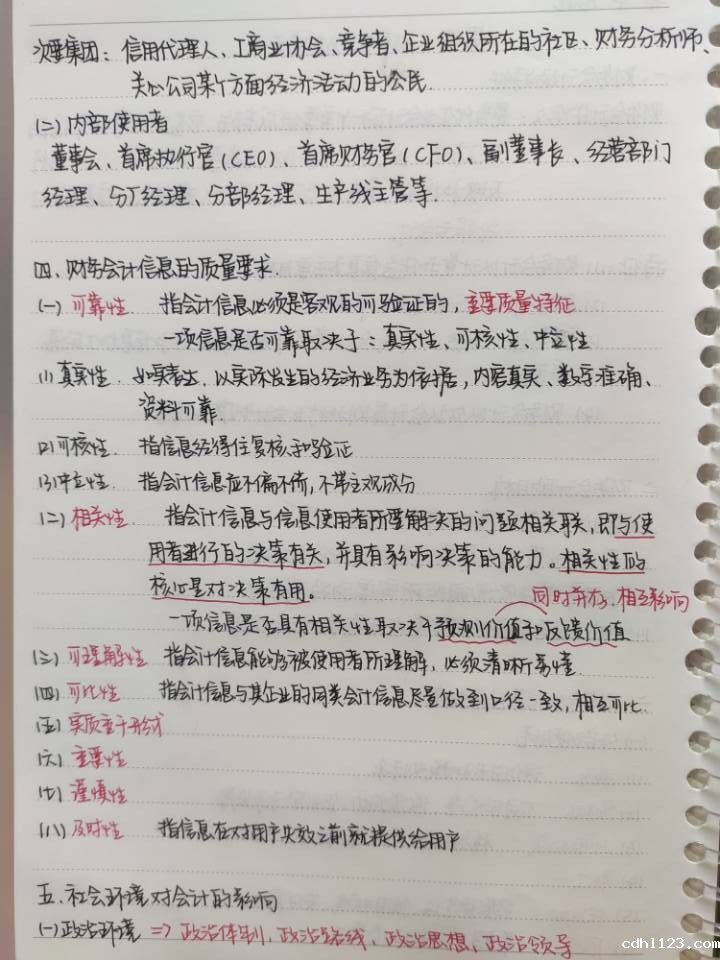 次要集团：信用代理人、工商业协会、竞争者、企业组织所在的社区、财务分析师、
关心公司某个方面经济活动的公民.
(二) 内部使用者
董事会、首席执行官(CEO)、首席财务官(CFO)、副董事长、经营部门
经理、分厂经理、分部经理、生产线主管等.
四、财务会计信息的质量要求.
(一) 可靠性. 指会计信息必须是客观的可验证的, 主要质量特征
一项信息是否可靠取决于：真实性、可核性、中立性
(1) 真实性. 如实表达, 以实际发生的经济业务为依据, 内容真实、数字准确、
资料可靠.
(2) 可核性. 指信息经得住复核和验证
(3) 中立性. 指会计信息应不偏不倚, 不带主观成分
(二) 相关性. 指会计信息与信息使用者所要解决的问题相关联, 即与使
用者进行的决策有关, 并具有影响决策的能力。相关性的
核心是对决策有用。
同时并存, 相互影响
一项信息是否具有相关性取决于预测价值和反馈价值
(三) 可理解性 指会计信息能够被使用者所理解, 必须清晰易懂.
(四) 可比性 指会计信息与其企业的同类会计信息尽量做到口径一致, 相互可比.
(五) 实质重于形式
(六) 重要性
(七) 谨慎性
(八) 及时性 指信息在对用户失效之前就提供给用户
五. 社会环境对会计的影响
(一) 政治环境 => 政治体制、政治路线、政治思想、政治领导
cdhl123.com